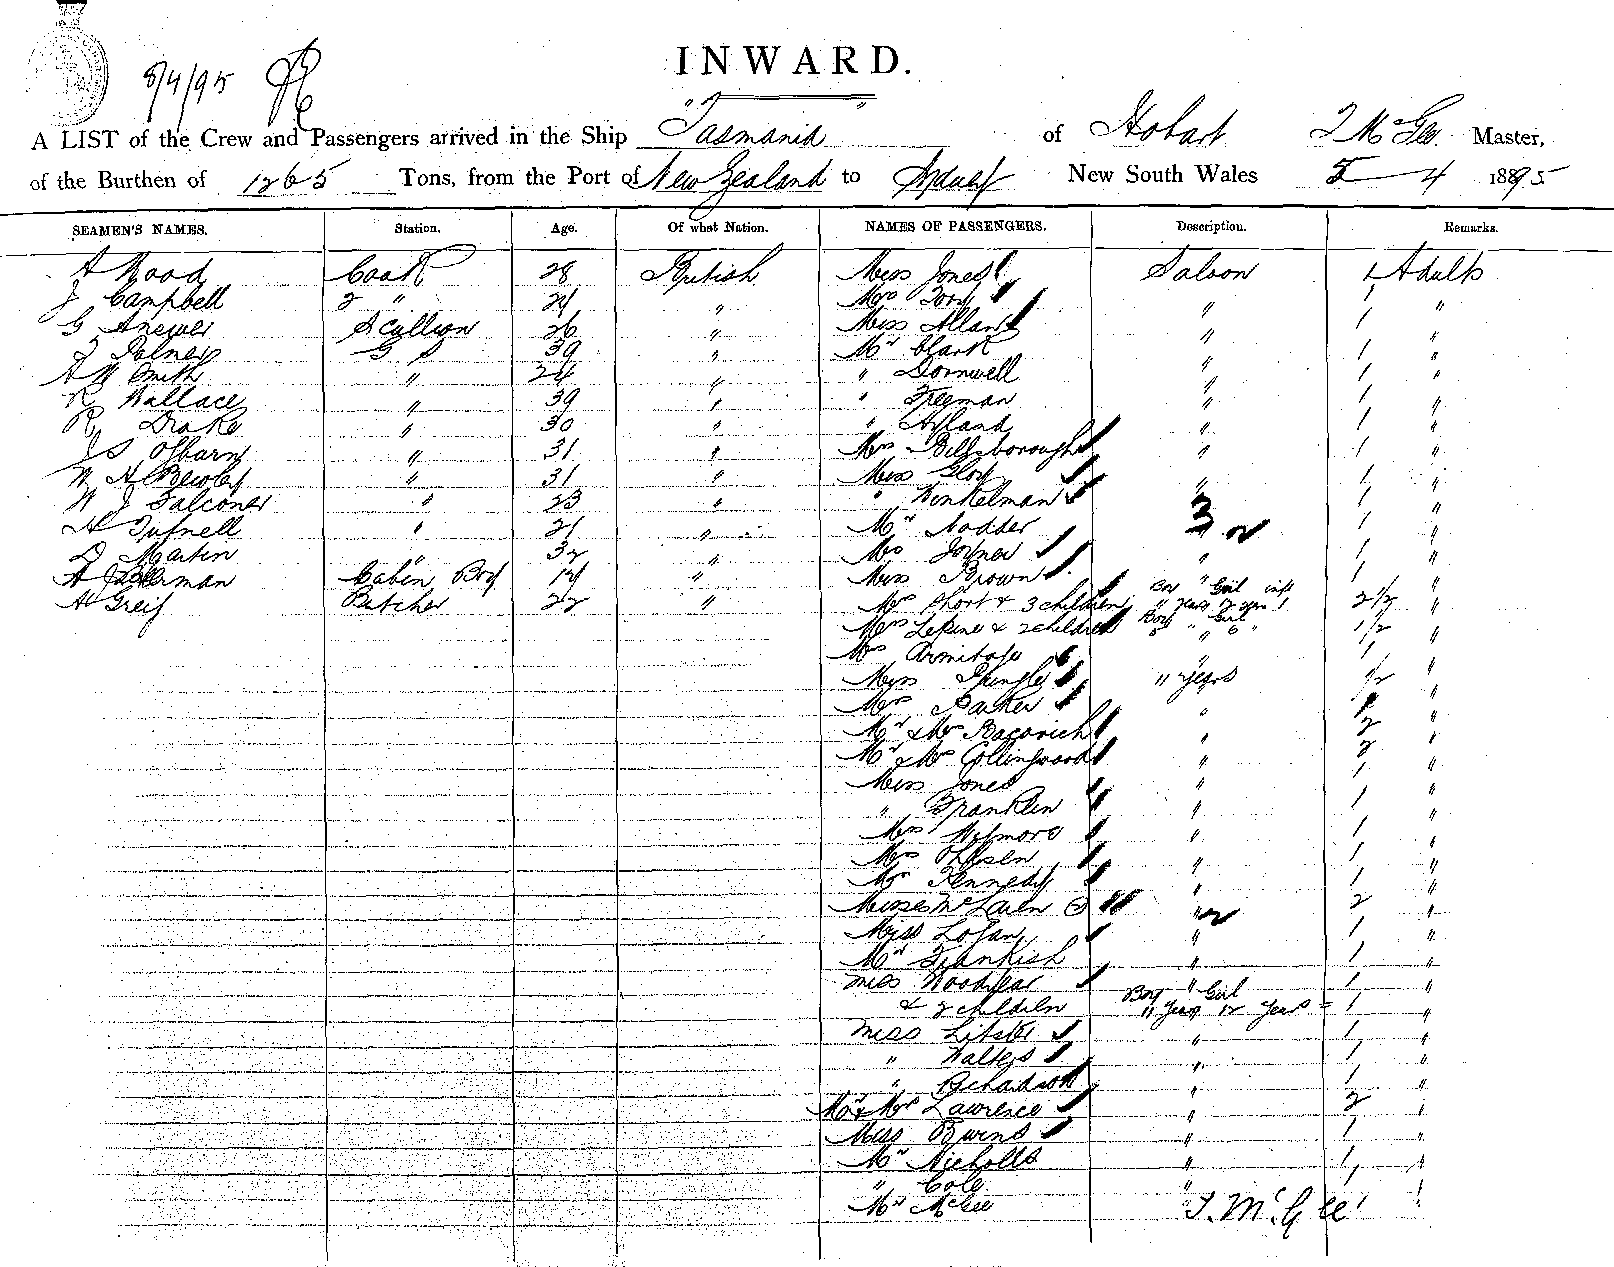 8/4/95
INWARD.
A LIST of the Crew and Passengers arrived in the Ship "Tasmania" of Hobart T McGee. Master,
of the Burthen of 1265 Tons, from the Port of New Zealand to Sydney New South Wales 5 - 4 1895
SEAMEN'S NAMES. Station. Age. Of what Nation. NAMES OF PASSENGERS. Description. Remarks.
A Wood Cook 28 British Miss Jones Saloon 1 Adults
J Campbell 2 " 24 " Mrs " 1 "
G Scullion 26 " Miss Allan " 1 "
J Palmer G S 39 " Mr Clark " 1 "
A W Smith " 24 " " Dornwell " 1 "
R Wallace " 39 " " Freeman " 1 "
R Drake " 30 " " Hyland " 1 "
J S Osbarn " 31 " Mrs Billsborough " 1 "
W H Bewley " 31 " Miss " 1 "
W J Falconer " 23 " " Winkelman 1 "
H Tufnell " 21 " Mr Nodder 3 1 "
D Martin " 32 " Mrs Joyner " 1 "
A Cabin Boy 14 " Miss Brown " 1 "
A Greig Butcher 22 " Mrs Short & 3 children Boy Girl inft 2 1/2 "
Mrs Lekine & 2 children Boy Girl 1/2 "
Mrs Armitage " 1 "
Miss Pringle " years 1/2 "
Mrs Parker " 1 "
Mr & Mrs Ragovich " 2 "
Mr & Mrs Collingwood " 2 "
Miss Jones " 1 "
" Franklin " 1 "
Mrs Wilmore " 1 "
Mrs Ohlsen " 1 "
Mrs Kennedy " 1 "
Misses McLaren 2 " 2 "
Miss Logan " 1 "
Mr Frankish " 1 "
Miss Woodyear " 1 "
& 2 children Boy Girl " years 12 years = 1
Miss Litster " 1 "
" Walters " 1 "
" Richardson " 1 "
Mr & Mrs Lawrence " 2 "
Miss Burns " 1 "
Mr Nicholls " 1 "
" Cole "
Mr McGee
T. McGee